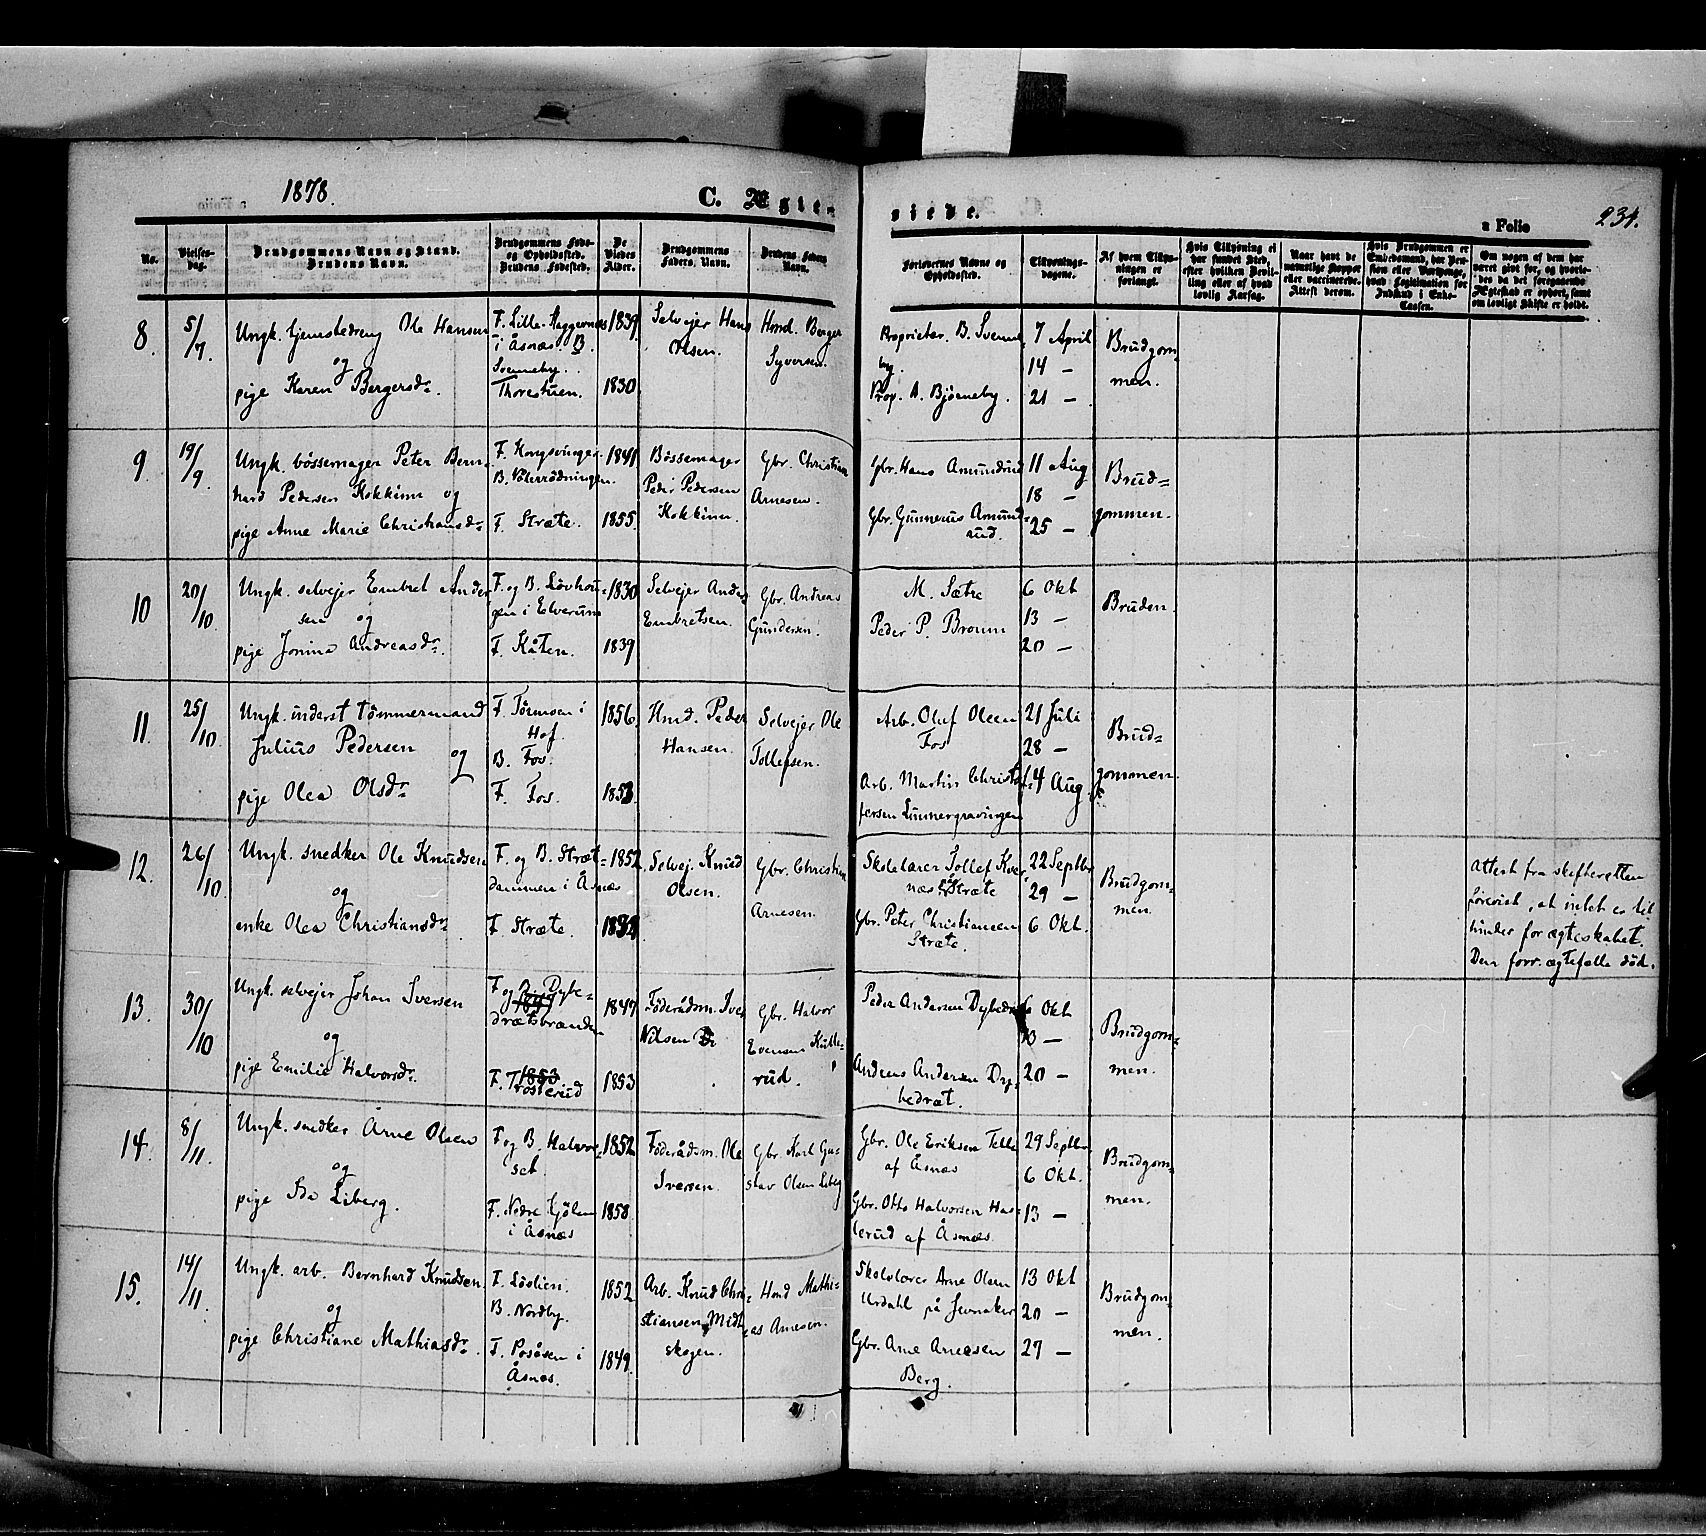 1878.
C. Ægte-
viede.
a Folio
234.
No.
Vielses-
dag.
Brudgommens Navn og Stand.
Brudens Navn.
Brudgommens Føde-
og Opholdssted.
Brudens Fødested.
De
Viedes
Alder.
Brudgommens
Faders Navn.
Brudens Faders
Navn.
Forlovernes Navne og
Opholdssted.
Tillysnings-
dagene.
Af hvem Tillys-
ningen er
forlangt.
Hvis Tillysning ei
har fundet Sted,
efter hvilken Bevil-
ling eller af hvad
lovlig Aarsag.
Naar havt de
naturlige Kopper
eller vaccinerede.
Attest derom.
Hvis Brudgommen er
Embedsmand, har Pen-
sion eller Vartpenge,
hvad Legitimation for
Indskud i Enke-
Cassen.
Om nogen af dem har
været gift før, og hvorle-
des da det foregaaende
Ægteskab er ophørt, samt
om lovligt Skifte er holdt.
8.
5/7
Ungk. tjenstedreng Ole Hansen
og
pige Karen Bergersdr.
F. Lille-Haggernes
i Åsnæs. B.
Svenneby.
Thorestuen.
1839.
1830
Selvejer Hans
Olsen.
Hmd. Berger
Syversen.
Proprietær. B. Svenne-
by.
Prop. A. Bjørneby.
7 April
14 —
21 —
Brudgom-
men.
9.
19/9.
Ungk. bössemager Peter Bern-
hard Pedersen Kokkinn og
pige Anne Marie Christiansdr.
F. Kongsvinger.
B. Vålerrödningen.
F. Stræte.
1841
1855.
Bössemager
Peder Pedersen
Kokkinn.
Gbr. Christian
Arnesen.
Gbr. Hans Amundrud
Gbr. Gunnerus Amund-
rud.
11 Aug
18 —
25 —
Brud-
gommen.
10
20/10.
Ungk. selvejer Embret Ander
sen og
pige Jonina Andreasdr.
F. og B. Lövhou-
gen i Elverum
F. Kåten.
1830
1839
Selvejer Anders
Embretsen.
Gbr. Andreas
Gundersen.
M. Sætre
Peder P. Broum
6 Okt
13 —
20 —
Bruden.
11.
25/10
Ungk. inderst tömmermand
Julius Pedersen
og
pige Olea Olsdr
F. Törmoen i
Hof.
B. Fos.
F. Fos.
1856.
1853.
Hmd. Peder
Hansen.
Selvejer Ole
Tollefsen.
Arb. Oluf Olsen
Fos
Arb. Martin Christof-
fersen Linnergravingen
21 Juli
28 —
4 Aug.
Brud-
gommen.
12.
26/10
Ungk. snedker Ole Knudsen
og
enke Olea Christiansdr.
F. og B. Stræt-
dammen i Åsnæs
F. Stræte.
1852.
Selvej. Knud
Olsen.
Gbr. Christian
Arnesen.
Skolelærer Tollef Kver
næs Stræte
Gbr. Peter Christiansen
Stræte.
22 Septbr
29 —
6 Okt.
Brudgom-
men.
Attest fra skifteretten
forevist, at intet er til
hinder for ægteskabet.
Den forr. ægtefælle död.
13.
30/10
Ungk. selvejer Johan Iversen
og
pige Emilie Halvorsdr.
F og B. Dybe-
drætsbranden
F. Trosterud
1847
1853
Föderådsm. Iver
Nilsen
Gbr. Halvor
Evensen Kulle-
rud.
Peder Andersen Dybedræt
Andreas Andersen Dy-
bedræt.
6 Okt
13 —
20 —
Brudgom-
men.
14.
8/11.
Ungk. snedker Arne Olsen
og
pige Ida Liberg.
F og B. Halvor-
set
F. Nedre Kjölen
i Åsnæs
1852
1858.
Föderådsm. Ole
Iversen.
Gbr. Karl Gu-
stav Olsen Liberg
Gbr. Ole Eriksen Telle
af Åsnæs
Gbr. Otto Halvorsen Has-
lerud af Åsnæs.
29 Septbr.
6 Okt.
13 —
Brudgom-
men.
15.
14/11.
Ungk. arb. Bernhard Knudsen
og
pige Christiane Mathiasdr.
F. Löslien.
B. Nordby.
F. Posåsen i
Åsnæs.
1852
1849.
Arb. Knud Chri-
stiansen Midt-
skogen.
Hmd Mathi-
as Arnesen.
Skolelærer Arne Olsen
Urdahl på Jevnaker
Gbr. Arne Arnesen
Berg.
13 Okt
20 —
27 —
Brudgom-
men.